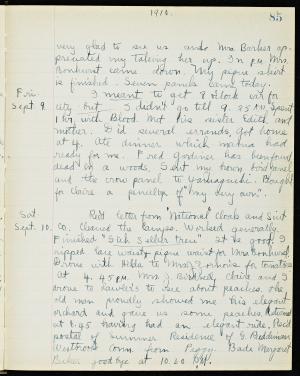 1910. 85
very glad to see us and Mrs. Barker ap-
preciated my taking her up. In P.M. Mrs.
Bonhurst came down. My pique skirt
is finished. Seven panels came today.
Fri. I meant to get 8 o'clock car for
Sept 9. city but I didn't go till 9.35 A.M. Spent
1 hr with Blood. Met his sister Edith and
mother. Did several errands, got home
at 4. Ate dinner which mama had
ready for me. Fred Gardner has been found
dead in a woods. Sent my town bond panel
and the crow panel to Bought
for Claire a "my very own".
Sat Rec'd letter from National Cloak and Suit
Sept. 10. Co. Cleaned the lamps. Worked generally.
Finished "Such Silver ". It is good. I
ripped lace waist, pique waist for Mrs. Bonhurst.
Drove with Hilda to Mrs. Johnson's for tomatoes
At 4.45 P.M. Mrs. J. Birdsell, Claire and I
drove to Lawler's to see about peaches. The
old man proudly showed me his elegant
orchard and gave us some peaches. Returned
at 6.45 having had an elegant ride. Rec'd
postal of Summer Residence of G.
Westmore Conn. from Peggy. Bade Margaret
Baker goodbye at 10.20 P.M.